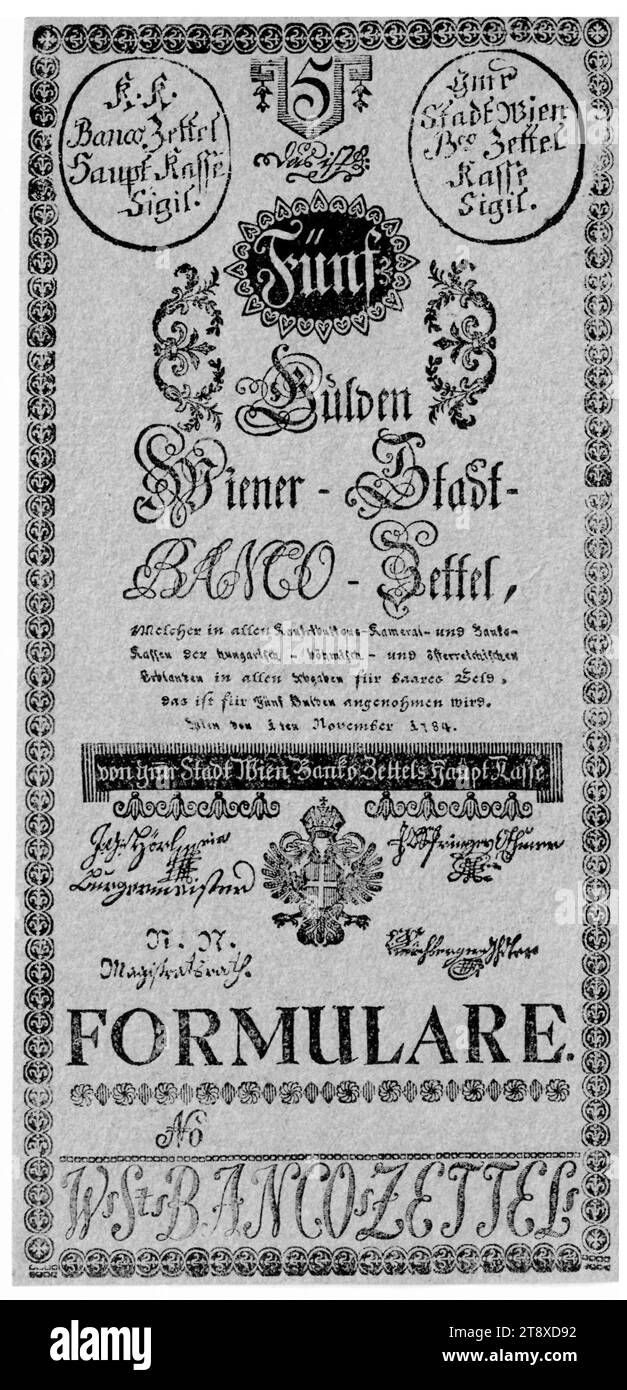 K. K.
Banco Zettel
Haupt Kasse
Sigil.
5
das ist
Gmr
Stadt Wien
Bco Zettel
Kasse
Sigil.
Fünf
Gulden
Wiener - Stadt-
BANCO - Zettel,
Welcher in allen Kontributions-Kameral- und Banko-
Kassen der hungarisch - böhmisch - und österreichischen
Erblanden in allen Abgaben für baares Geld,
das ist für Fünf Gulden angenohmen wird.
Wien den 1ten November 1784.
von Gmr Stadt Wien Banko Zettels Haupt Kasse
Hörl
Burgermeister
N. N.
Magistratsrath.
FORMULARE.
No
W.St.BANCO ZETTEL
alamy
alamy
Image ID: 2T8XD92
www.alamy.com